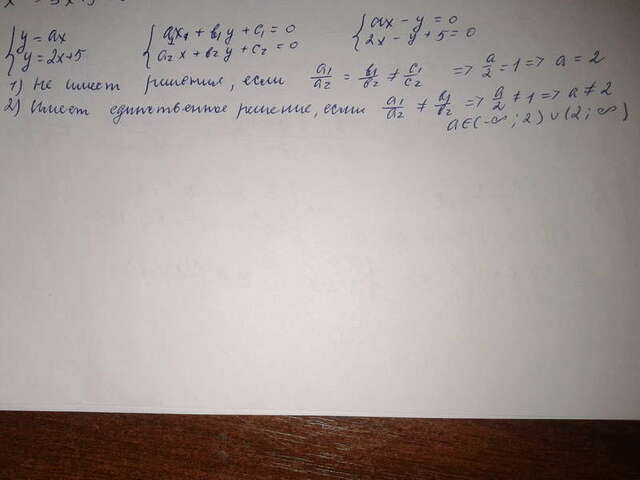 {y = ax
y = 2x+5
{a₁x + b₁y + c₁ = 0
a₂x + b₂y + c₂ = 0
{ax - y = 0
2x - y + 5 = 0
1) Не имеет решения, если a₁/a₂ = b₁/b₂ ≠ c₁/c₂ => a/2 = 1 => a = 2
2) Имеет единственное решение, если a₁/a₂ ≠ b₁/b₂ => a/2 ≠ 1 => a ≠ 2
a∈(-∞; 2)∪(2; ∞)